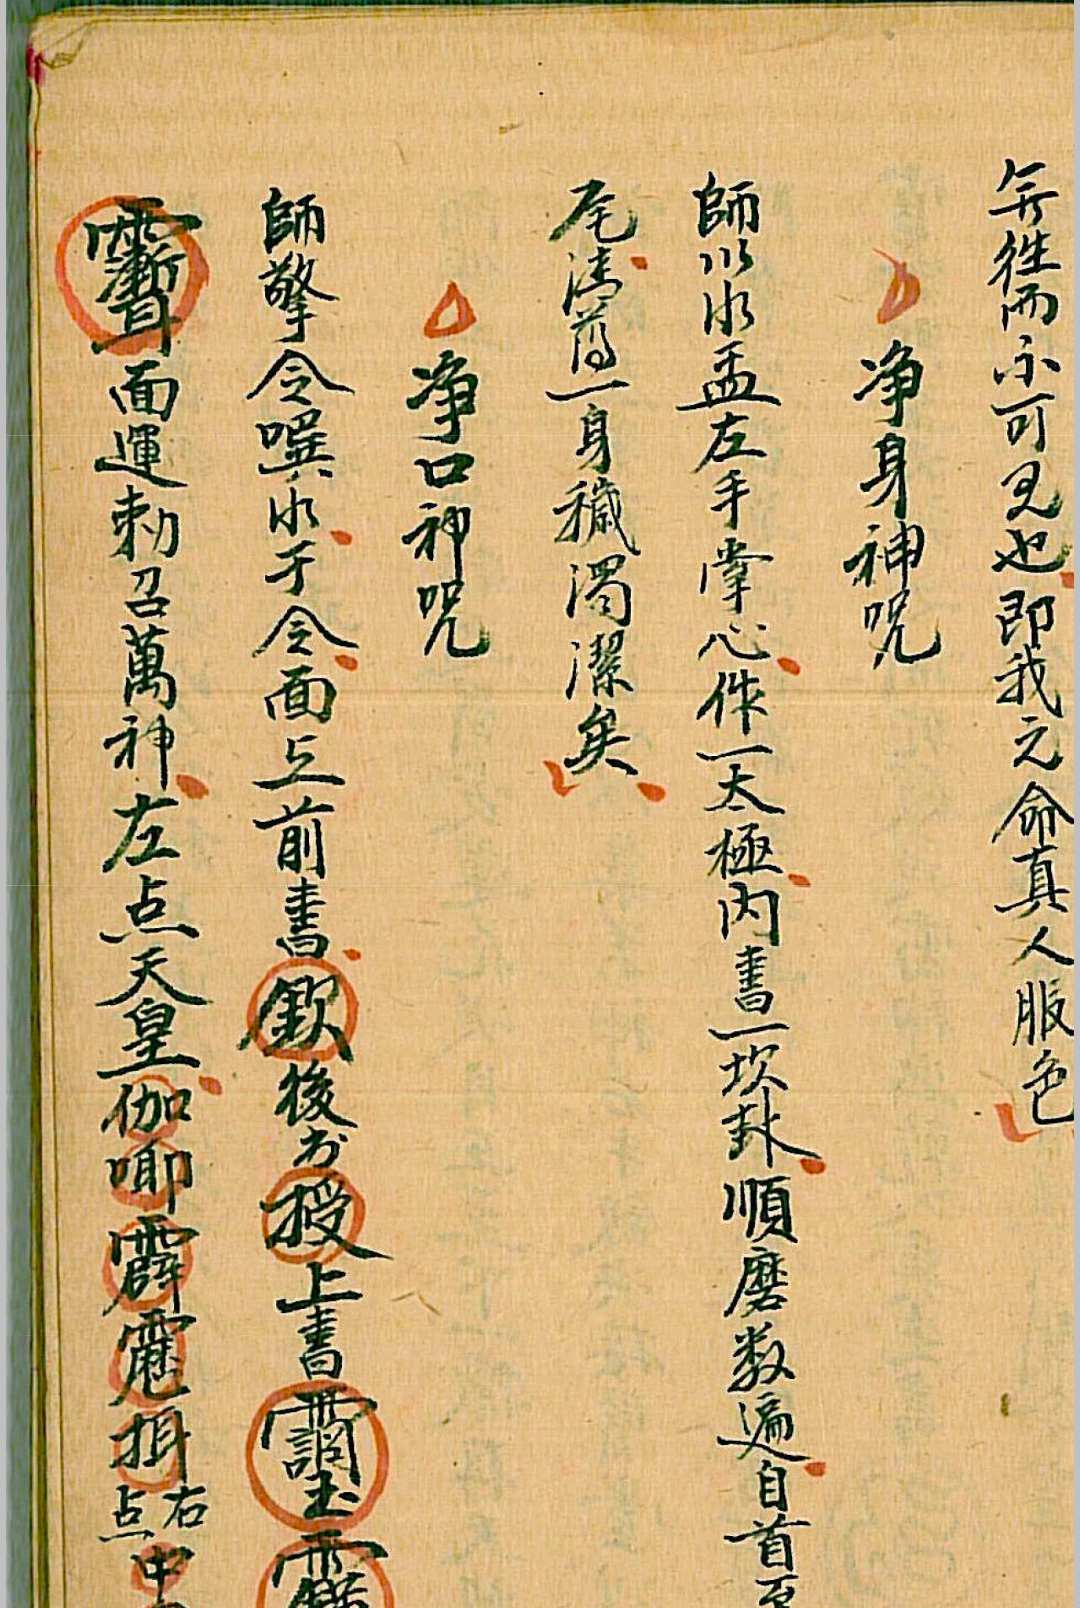 無徃而不可見也即我之命真人服色
净身神咒
師以水盂左手掌心作一太極内書一坎卦順磨数遍自首至
尾清蕩一身穢濁潔矣
净口神咒
師擎令噀水于令面上前書欽後书授上書
面運勅召萬神左点天皇伽唧霹靋挕右点中